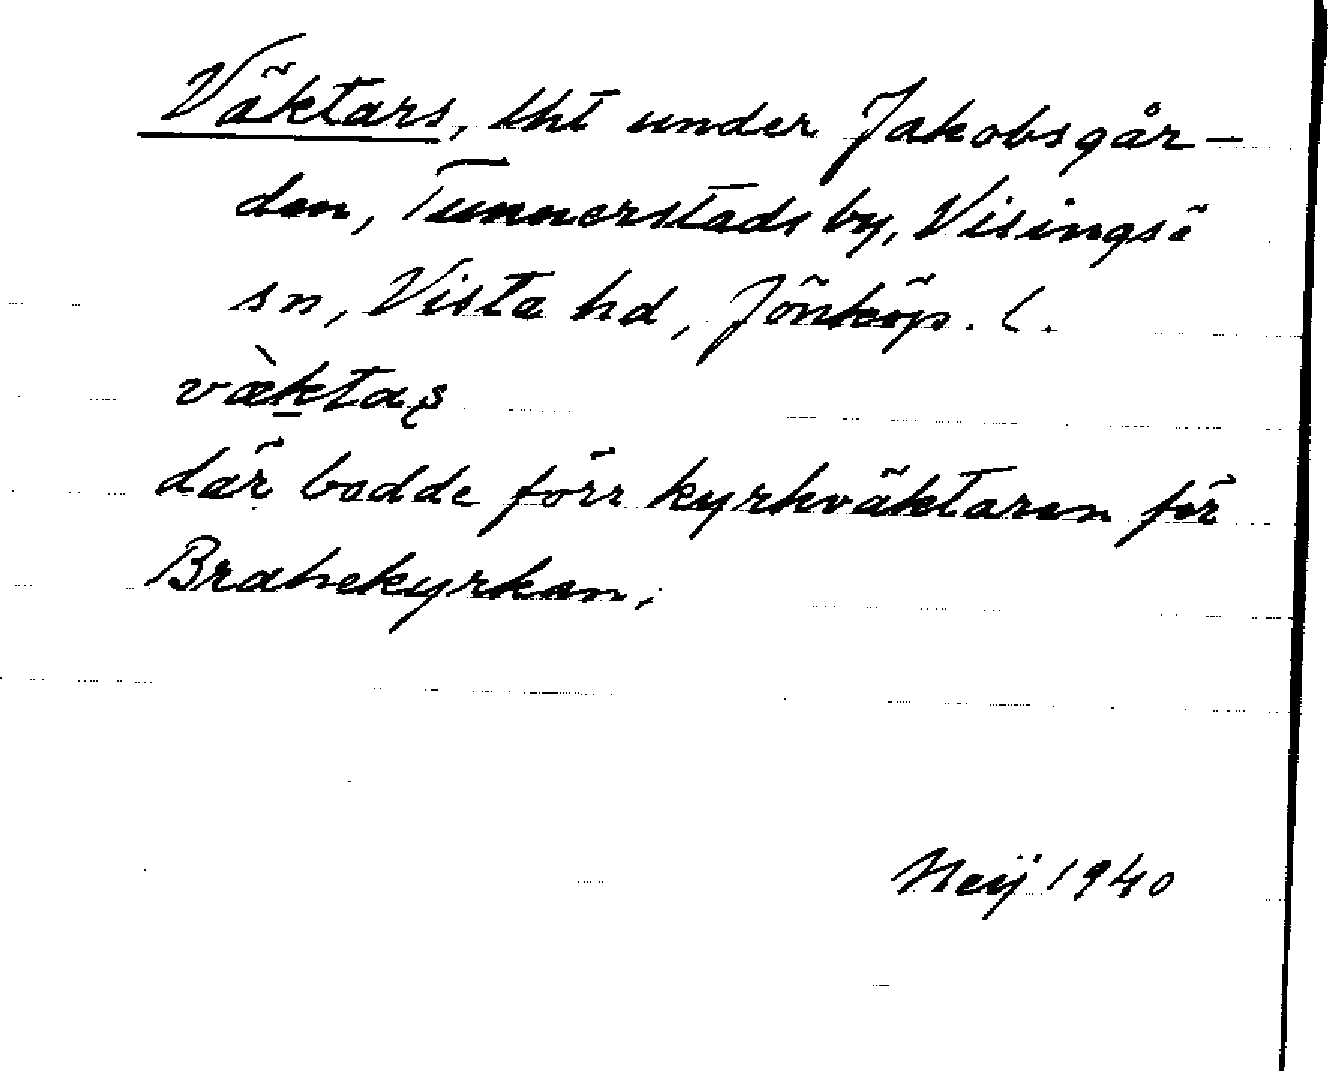 Väktars, tht under Jakobsgår-
den, Tunnerstads by, Visingsö
sn, Vista hd, Jönköp. l.
væ̀ktaş
där bodde förr kyrkväktaren för
Brahekyrkan.
Neij 1940